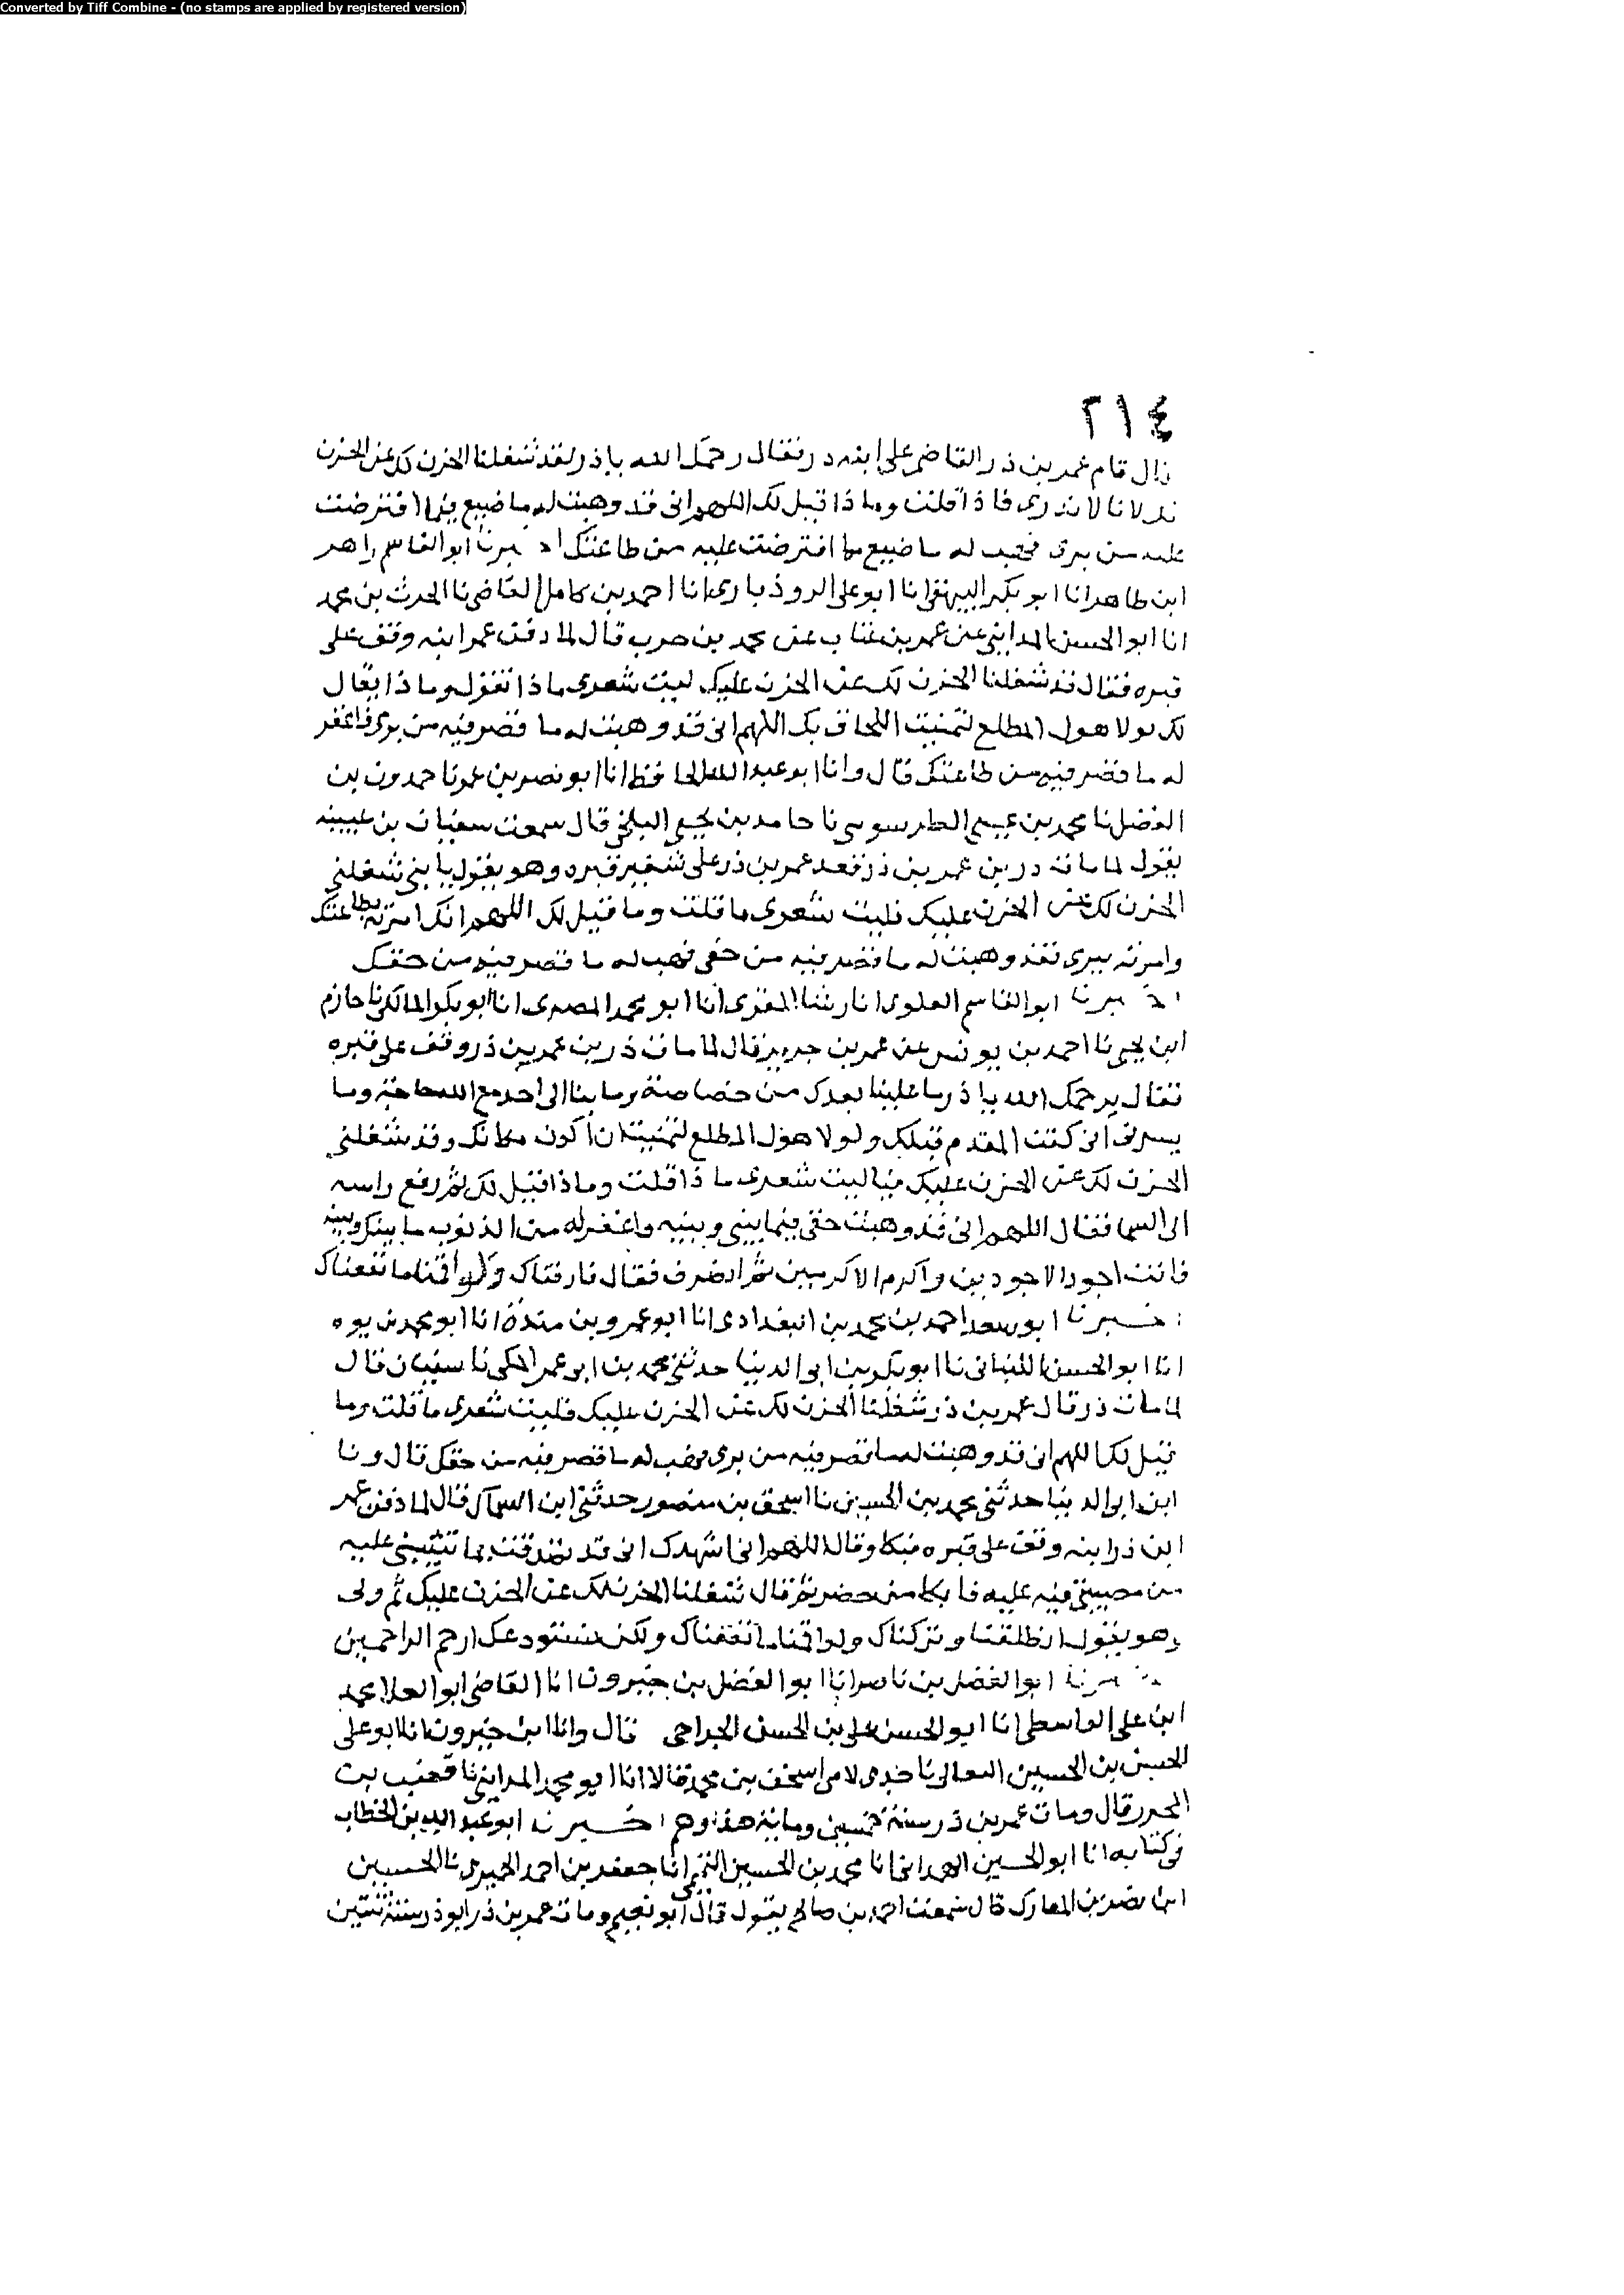 Converted by Tiff Combine - (no stamps are applied by registered version)
٢١٤
قال قام عمر بن ذر القاضي على ابنه ذر فقال رحمك الله ياذر لقد شغلنا الحزن لك عن الحزن
لانا لا ندرى ماذا قلت وماذا قيل لك اللهم انى قد وهبت له ما ضيع فيما افترضت
عليه من برى فهب له ما ضيع مما افترضت عليه من طاعتك اخبرنا ابو القاسم زاهر
ابن طاهر انا ابو بكر البيهقى انا ابو على الروذبارى انا احمد بن كامل القاضى نا الحرث بن محمد
انا ابو الحسن المداينى عن عمر بن غياث عن محمد بن حرب قال لما دفن عمر ابنه وقف على
قبره فقال قد شغلنا الحزن لك عن الحزن عليك ليت شعرى ماذا تقول وماذا يقال
لك لولا هول المطلع لتمنيت اللحاق بك اللهم انى قد وهبت له ما قصر فيه من برى فاغفر
له ما قصر فيه من طاعتك قال وانا ابو عبد الله الحافظ انا ابو نصر بن عمر نا حمدون بن
الفضل نا محمد بن عيسى الطرسوسى نا حامد بن يحيى البلخى قال سمعت سفيان بن عيينه
يقول لما مات ذر بن عمر بن ذر قعد عمر بن ذر على شفير قبره وهو يقول يا بنى شغلنى
الحزن لك عن الحزن عليك فليت شعرى ما قلت وما قيل لك اللهم انك امرته بطاعتك
وامرته ببرى فقد وهبت له ما قصر فيه من حقى فهب له ما قصر فيه من حقك
اخبرنا ابو القاسم العلوى انا رشا المقرى انا ابو محمد المصرى انا ابو بكر المالكى نا حازم
ابن يحيى نا احمد بن يونس عن عمر بن جرير قال لما مات ذر بن عمر بن ذر وقف على قبره
فقال يرحمك الله يا ذر ما علينا بعدك من خصاصة وما بنا الى احد مع الله حاجة وما
يسرنى انى كنت المقدم قبلك ولولا هول المطلع لتمنيت ان اكون مكانك وقد شغلنى
الحزن لك عن الحزن عليك فيا ليت شعرى ما ذا قلت وماذا قيل لك ثم رفع راسه
الى السما فقال اللهم انى قد وهبت حقى فيما بينى وبينه واغفر له من الذنوب ما بينك وبينه
فانت اجود الاجودين واكرم الاكرمين ثم انصرف فقال فارقناك ولو اقمنا ما نفعناك
اخبرنا ابو سعد احمد بن محمد بن البغدادى انا ابو عمرو بن مندة انا ابو محمد بن يوه
انا ابو الحسن اللنبانى نا ابو بكر بن ابى الدنيا حدثنى محمد بن ابو عمر المكى نا سفيان قال
لما مات ذر قال عمر بن ذر شغلنا الحزن لك عن الحزن عليك فليت شعرى ما قلت وما
قيل لك اللهم انى قد وهبت له ما قصر فيه من برى فهب له ما قصر فيه من حقك قال ونا
ابن ابى الدنيا حدثنى محمد بن الحسين نا اسحق بن منصور حدثنى ابن السماك قال لما دفن عمر
ابن ذر ابنه وقف على قبره فبكا وقال اللهم انى اشهدك انى قد تصدقت بما تثيبنى عليه
من مصيبتى فيه عليه فابكا من حضر ثم قال شغلنا الحزن لك عن الحزن عليك ثم ولى
وهو يقول انطلقنا وتركناك ولو اقمنا ما نفعناك ولكن نستودعك ارحم الراحمين
اخبرنا ابو الفضل بن ناصر انا ابو الفضل بن خيرون انا القاضى ابو العلا محمد
ابن على الواسطى انا ابو الحسن على بن الحسن الجراحى قال وانا ابن خيرون انا ابو على
الحسن بن الحسين النعالى نا جدى لامى اسحق بن محمد قالا انا ابو محمد المداينى نا قعنب بن
المحرر قال ومات عمر بن ذر سنة خمسين وماية هذا وهم اخبرنا ابو عبد الله بن الخطاب
فى كتابه انا ابو الحسين الهمدانى انا محمد بن الحسين اليمنى انا جعفر بن احمد الحميرى نا الحسين
ابن نصر بن المعارك قال سمعت احمد بن صالح يقول قال ابو نعيم ومات عمر بن ذر ابو ذر سنة ثنتين